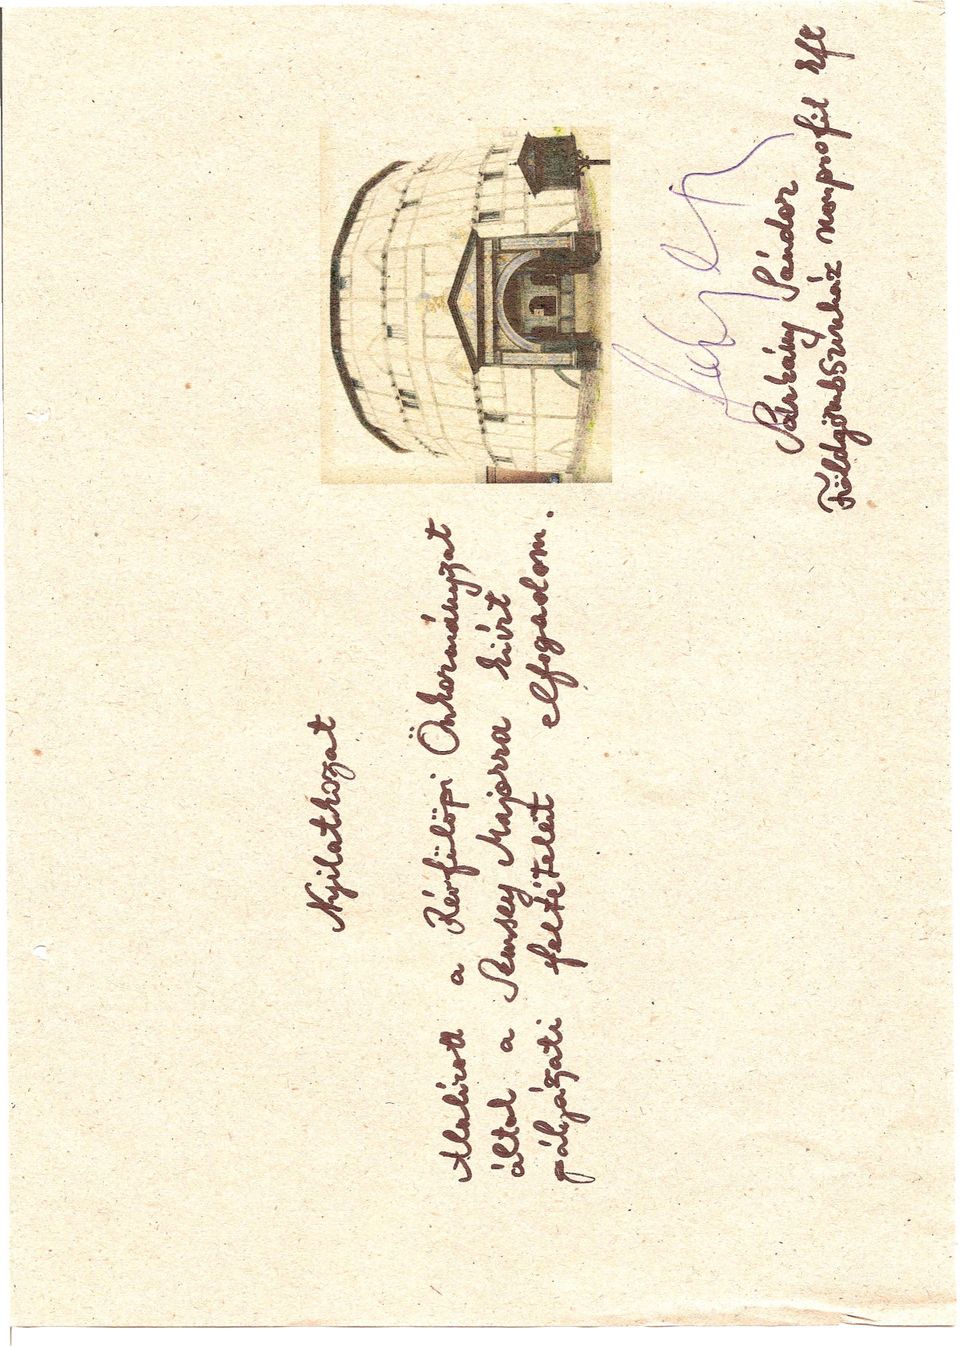 Nyilatkozat
Alulírott a Révfülöpi Önkormányzat
által a Semsey Majorra kiírt
pályázati feltételeit elfogadom.
Sárkány Sándor
Földgömbszínház nonprofit kft